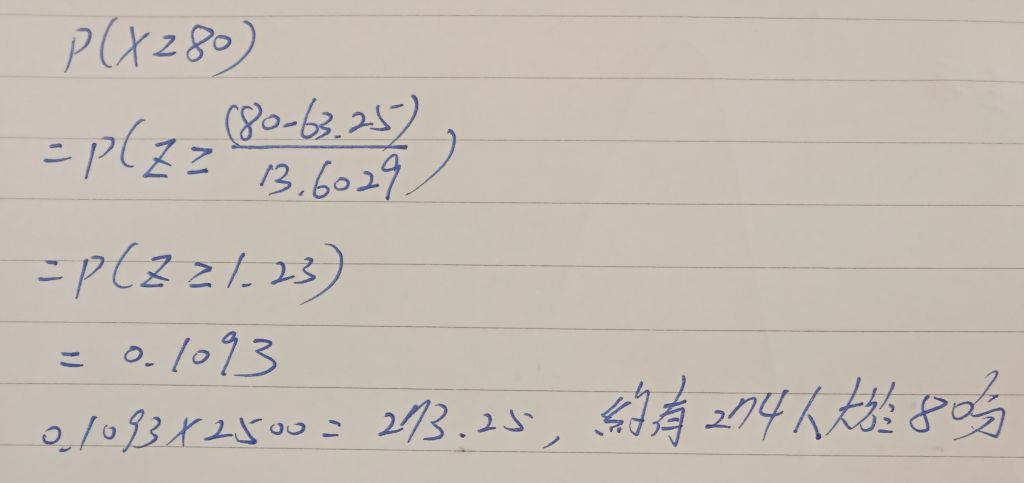 P(X≥80)
=P(Z≥(80-63.25)/13.6029)
=P(Z≥1.23)
= 0.1093
0.1093×2500=273.25, 約有274人大於80分